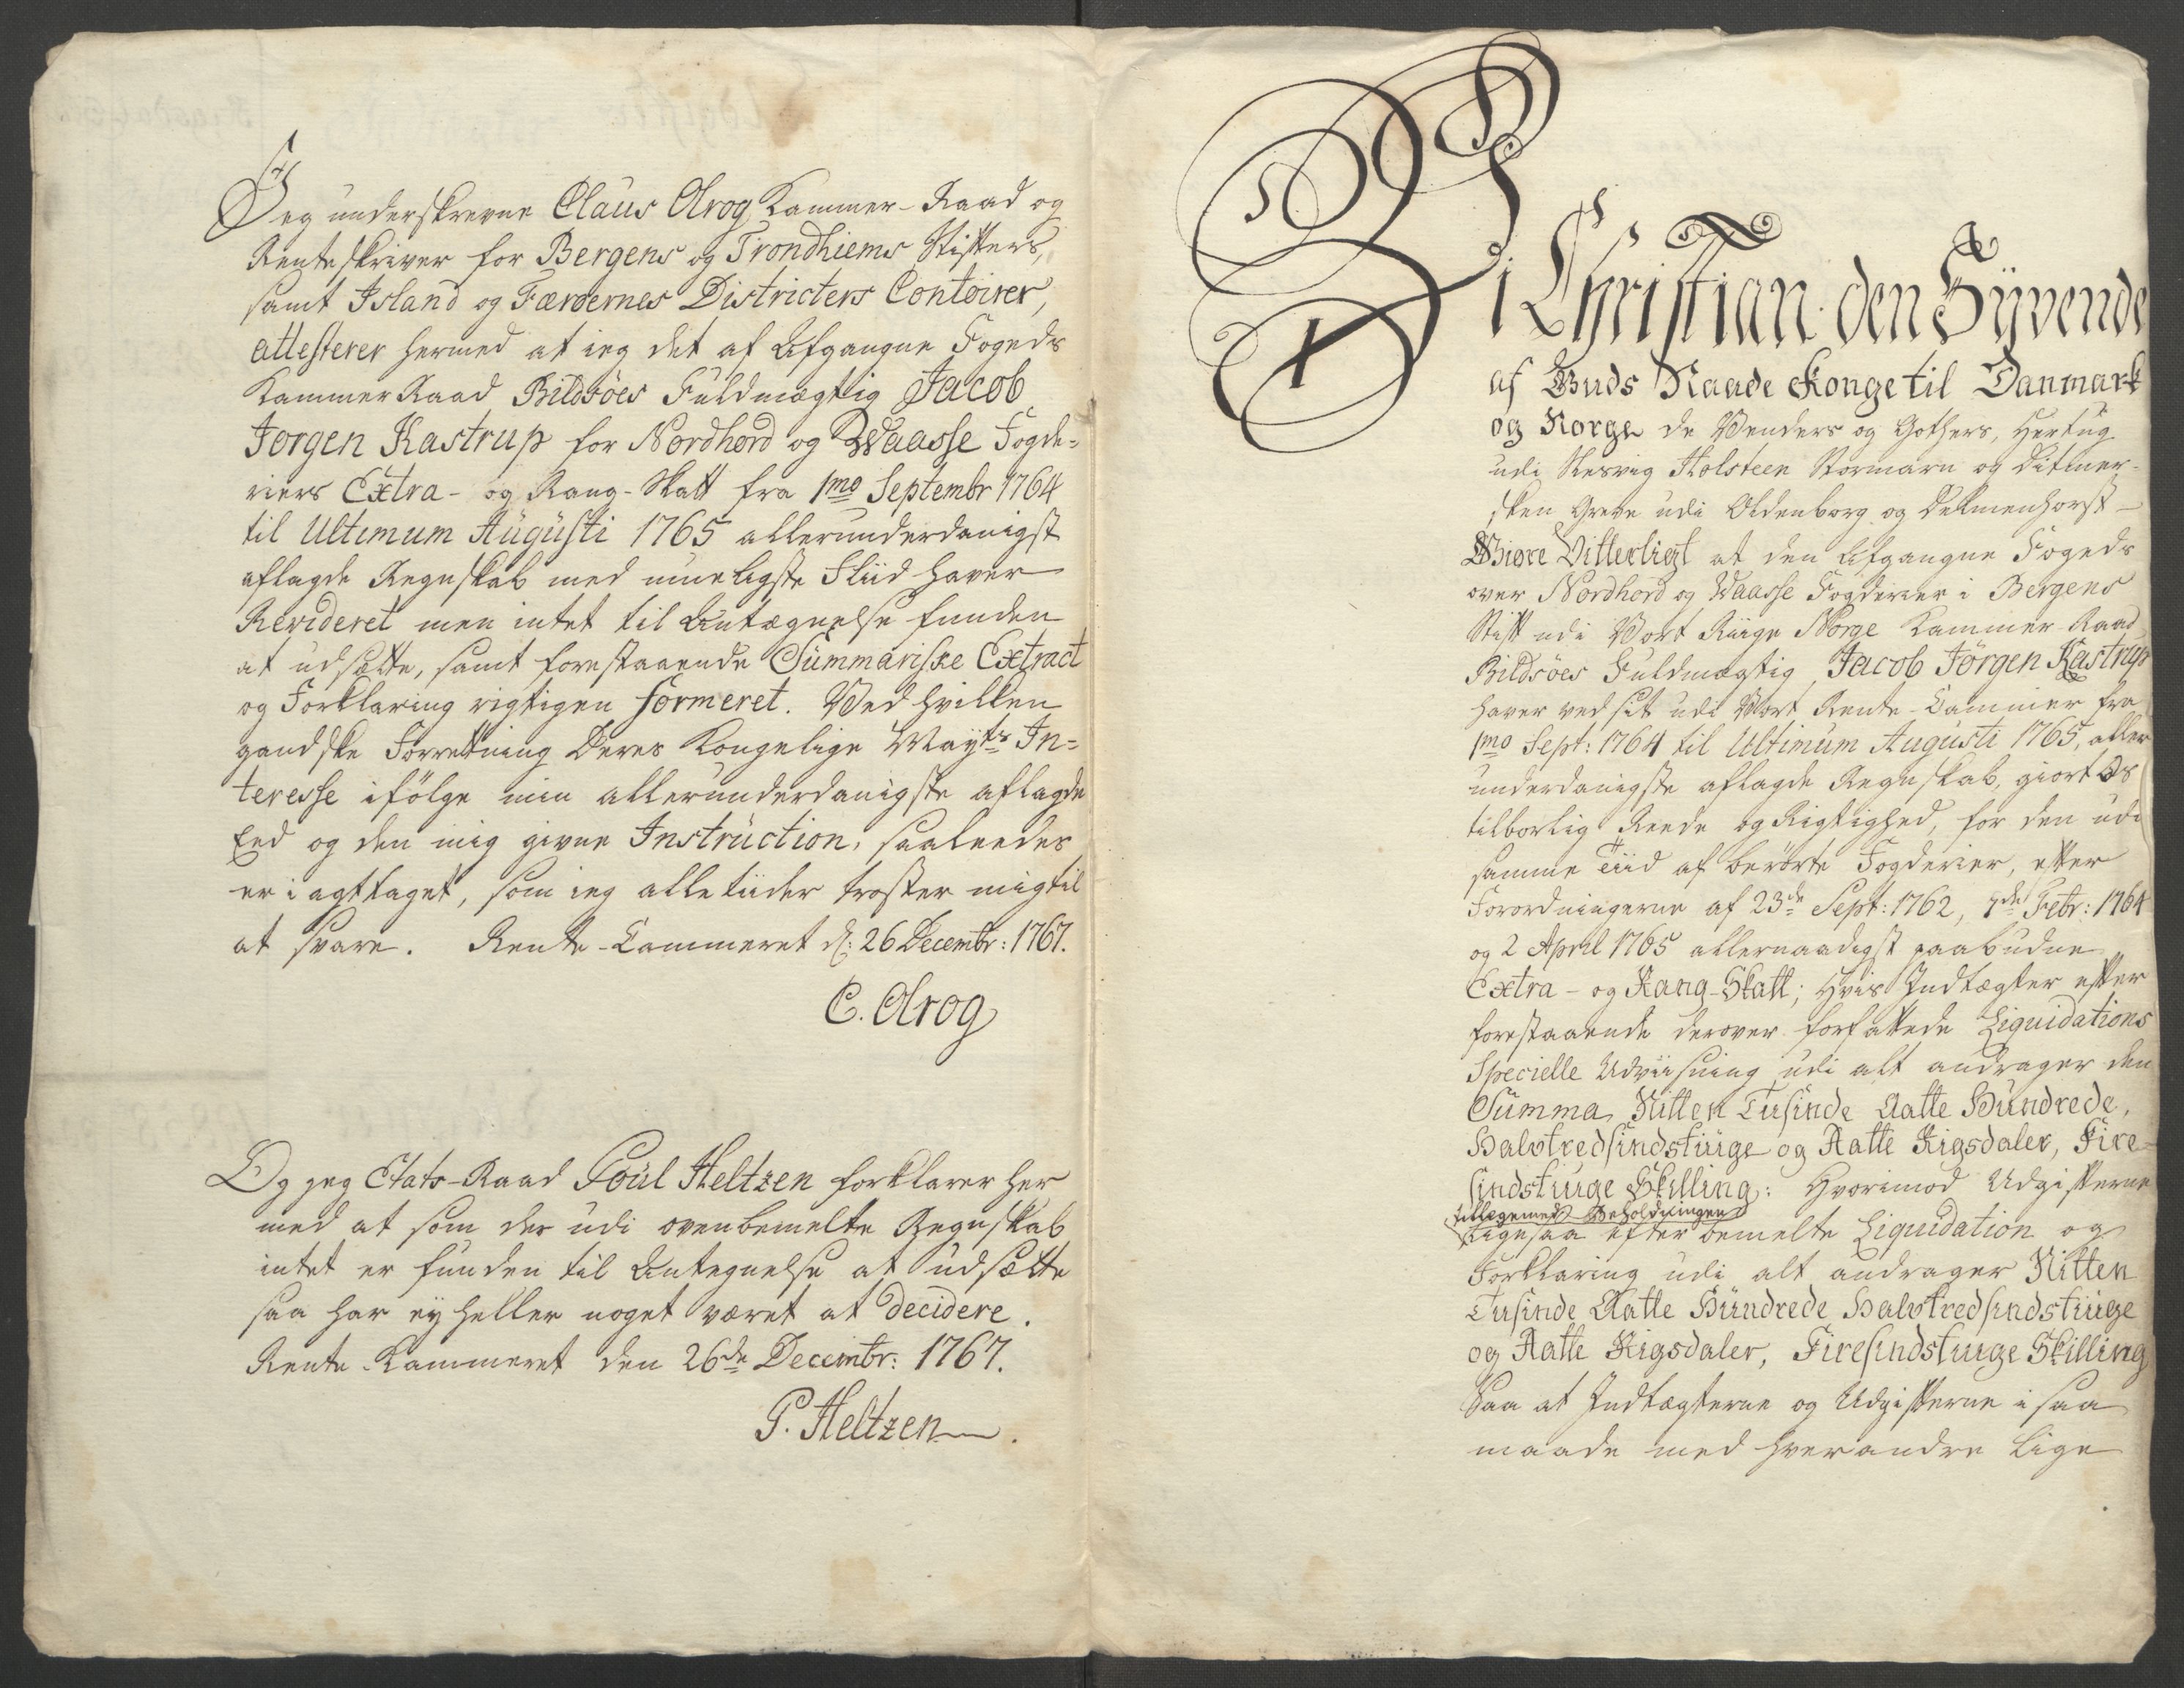 Jeg underskrevne Claus Olrog, Kammer-Raad og
Renteskriver for Bergens og Trondhiems Stifters,
samt Island og Færoernes Districters Contoirer,
attesterer hermed at ieg det af Afgangne Fogeds
Kammer Raad Bildsöes Fuldmægtig Jacob
Jorgen Kastrup for Nordhord og Waasse Fogde-
riers Extra- og Rang-Skatt fra 1mo Septembr 1764
til Ultimum Augusti 1765 allerunderdanigst
aflagde Regnskab med mueligste Fliid haver
Revideret men intet til Antægnelse funden
at udsætte, samt forestaaende Summariske Extract
og Forklaring rigtigen formeret. Ved hvilken
gandske Forretning Deres Kongelige Mayts In-
teresse ifölge min allerunderdanigste aflagde
Eed og den mig givne Instruction, saaleedes
er iagttaget, som ieg alletiider trøster mig til
at svare. Rente-Cammeret d: 26 Decembr: 1767.
C. Olrog
Og jeg Etats-Raad Poul Heltzen forklarer her
med at som der udi ovenbemelte Regnskab
intet er funden til Antegnelse at udsætte
saa har ey heller noget været at decidere.
Rente-Kammeret den 26de Decembr: 1767.
P. Heltzen.
Vi Christian den Syvende
af Guds Naade Konge til Danmark
og Norge de Venders og Gothers, Hertug
udi Slesvig Holsteen Stormarn og Ditmer-
sken Greve udi Oldenborg og Delmenhorst
Giøre Vitterligt at den Afgangne Fogeds
over Nordhord og Waasse Fogderier i Bergens
Stift udi Vort Riige Norge Kammer-Raad
Bildsöes Fuldmægtig, Jacob Jörgen Kastrup
haver ved sit udi Vort Rente-Cammer fra
1mo Sept: 1764 til Ultimum Augusti 1765, aller
underdanigste aflagde Regnskab, giort Os
tilborlig Reede og Rigtighed, for den udi
samme Tiid af berörte Fogderier, efter
Forordningerne af 23de Sept: 1762, 7de Febr: 1764
og 2 April 1765 allernaadigst paabudne
Extra- og Rang-Skatt; Hvis Indtægter efter
forestaaende derover forfattede Liquidations
Specielle Udviisning udi alt andrager den
Summa Nitten Tusinde Aatte Hundrede,
Halvtredsindstiuge og Aatte Rigsdaler, Fire-
sindstiuge Skilling: Hvorimod Udgifterne
tilligemed Beholdningen
Ligesaa efter bemelte Liquidation og
Forklaring udi alt andrager Nitten
Tusinde Aatte Hundrede Halvtredsindstiuge
og Aatte Rigsdaler, Firesindstiuge Skilling
Saa at Indtægterne og Udgifterne i saa
maade med hverandre lige